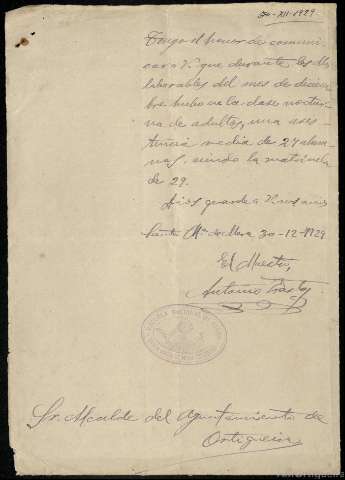 30-XII-1929
Tengo el honor de comuni
car a V. que durante los días
laborables del mes de diciem
bre hubo en la clase noctur
na de adultos, una asis
tencia media de 24 alum
nos, siendo la matrícula
de 29.
Dios guarde a V. ms. as
Santa Mª de Mera 30-12-1929
El Maestro,
Antonio
Sr. Alcalde del Ayuntamiento de
Ortigueira